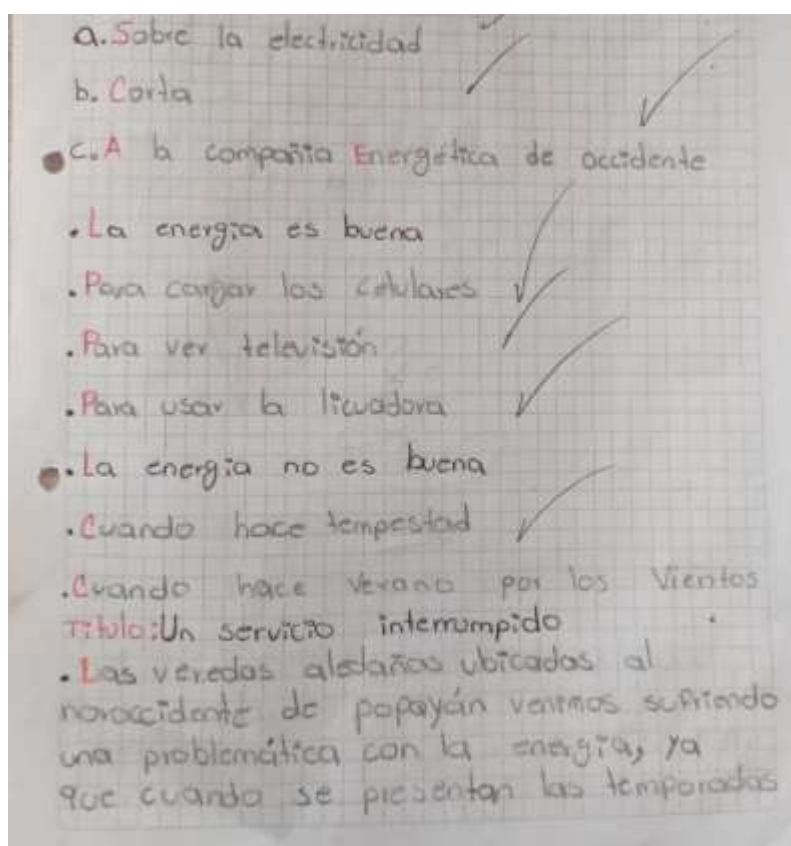 a. Sobre la electricidad
b. Corta
c. A la compañia Energética de occidente
. La energia es buena
. Para cargar los celulares
. Para ver televisión
. Para usar la licuadora
. La energia no es buena
. Cuando hace tempestad
. Cuando hace verano por los vientos
Titulo: Un servicio interrumpido
. Las veredas aledañas ubicadas al
noroccidente de popayán venimos sufriendo
una problemática con la energía, ya
que cuando se presentan las temporadas